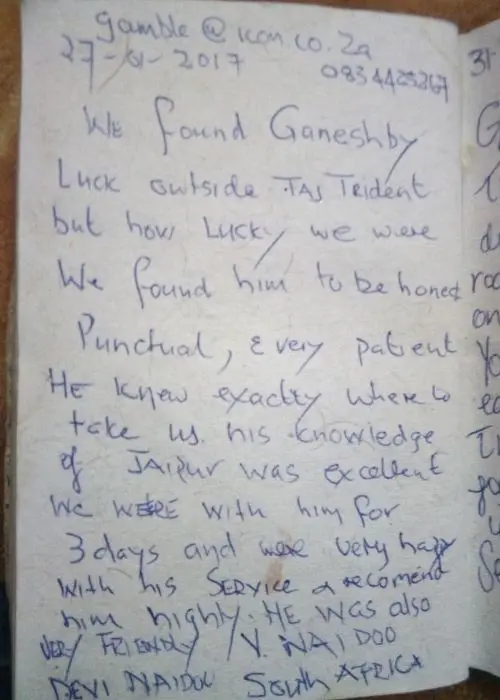 gamble@icon.co.za
27-01-2017 0834425267
We found Ganesh by
Luck outside TAJ Trident
but how Lucky we were
We found him to be honest
Punctual, & very patient
HE knew exactly where to
take us. his knowledge
of JAIPUR was excellent
We WERE with him for
3 days and were very happy
with his SERVICE & recomend
him highly. HE was also
VERY FRIENDLY V. NAIDOO
DEVI NAIDOO SOUTH AFRICA
31